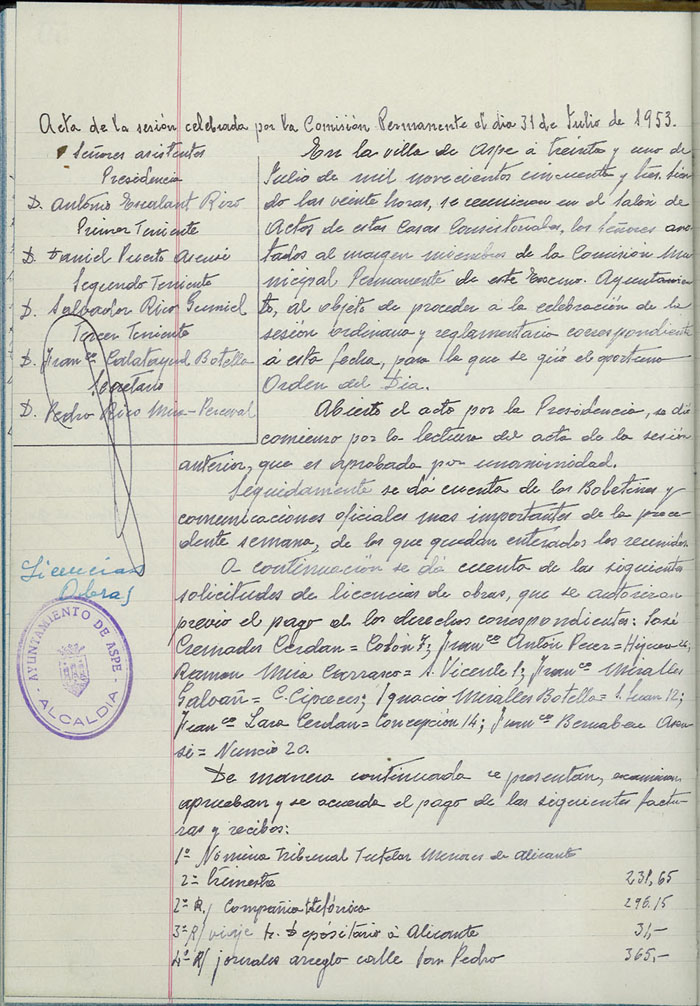 Acta de la sesión celebrada por la Comisión Permanente el dia 31 de Julio de 1953.
Señores asistentes
Presidencia
D. Antonio Escalant Rizo
Primer Teniente
D. Daniel Puerto Asensi
Segundo Teniente
D. Salvador Rico Gumiel
Tercer Teniente
D. Franco Calatayud Botella
Secretario
D. Pedro Rico Mira-Perceval
En la villa de Aspe á treinta y uno de
Julio de mil novecientos cincuenta y tres, sien
do las veinte horas, se reunieron en el Salón de
Actos de estas Casas Consistoriales, los Señores ano
tados al margen miembros de la Comisión Mu
nicipal Permanente de este Excmo. Ayuntamien
to, al objeto de proceder a la celebración de la
sesión ordinaria y reglamentaria correspondiente
á esta fecha, para la que se giró el oportuno
Orden del Dia.
Abierto el acto por la Presidencia, se dió
comienzo por la lectura del acta de la sesión
anterior, que es aprobada por unanimidad.
Seguidamente se dá cuenta de los Boletines y
comunicaciones oficiales mas importantes de la prece
dente semana, de los que quedan enterados los reunidos.
A continuación se dá cuenta de las siguientes
solicitudes de licencias de obras, que se autorizan
previo el pago de los derechos correspondientes: José
Cremades Cerdan = Colón 7; Franco Antón Perez =
Ramon Mira Carrasco = S. Vicente 1; Franco Miralles
Galvañ = C. Cipreces; Ignacio Miralles Botella = S. Juan 12;
Franco Lara Cerdan = Concepción 14; Franco Bernabeu Asen
si = Nuncio 20.
De manera continuada se presentan, examinan
aprueban y se acuerda el pago de las siguientes factu
ras y recibos:
1º Nomina Tribunal Tutelar Menores de Alicante
2º trimestre 231,65
2º R/ Compañia telefónica 296.15
3º R/ viaje Sr. Depósitario á Alicante 31,-
4º R/ jornales arreglo calle San Pedro 365,-
Licencias
Obras
AYUNTAMIENTO DE ASPE
- ALCALDIA -